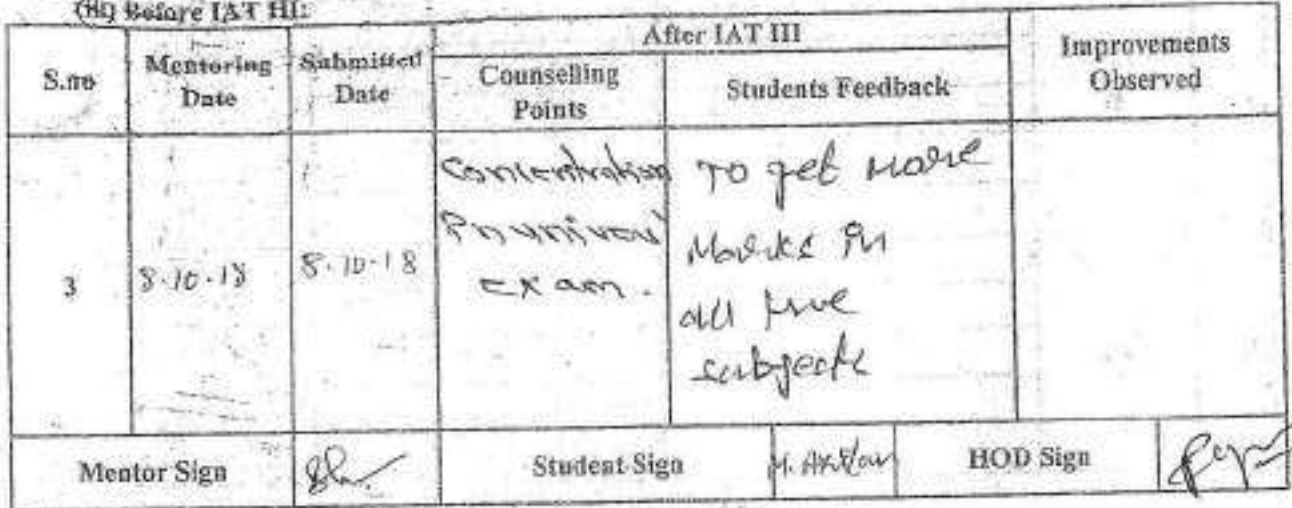 (III) Before IAT III:
S.no
Mentoring Date
Submitted Date
After IAT III
Counselling Points
Students Feedback
Improvements Observed
3
8.10.18
8.10.18
Concentration
exam.
To get more
Marks in
all
subjects
Mentor Sign
Student Sign
HOD Sign